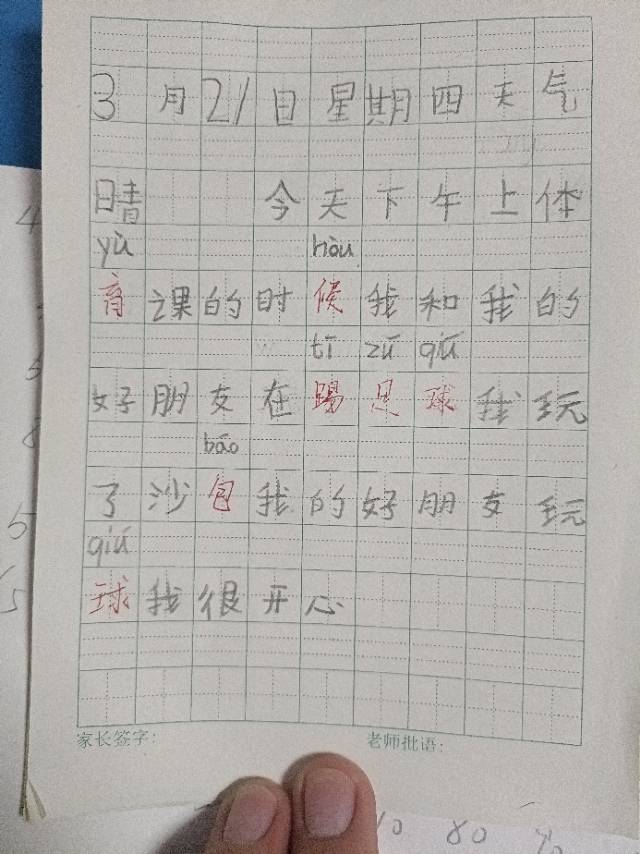 3月21日星期四天气
晴 今天下午上体
yù hòu
育课的时候我和我的
tī zú qiú
好朋友在踢足球我玩
bāo
了沙包我的好朋友玩
qiú
球我很开心
家长签字: 老师批语:
10 80 40